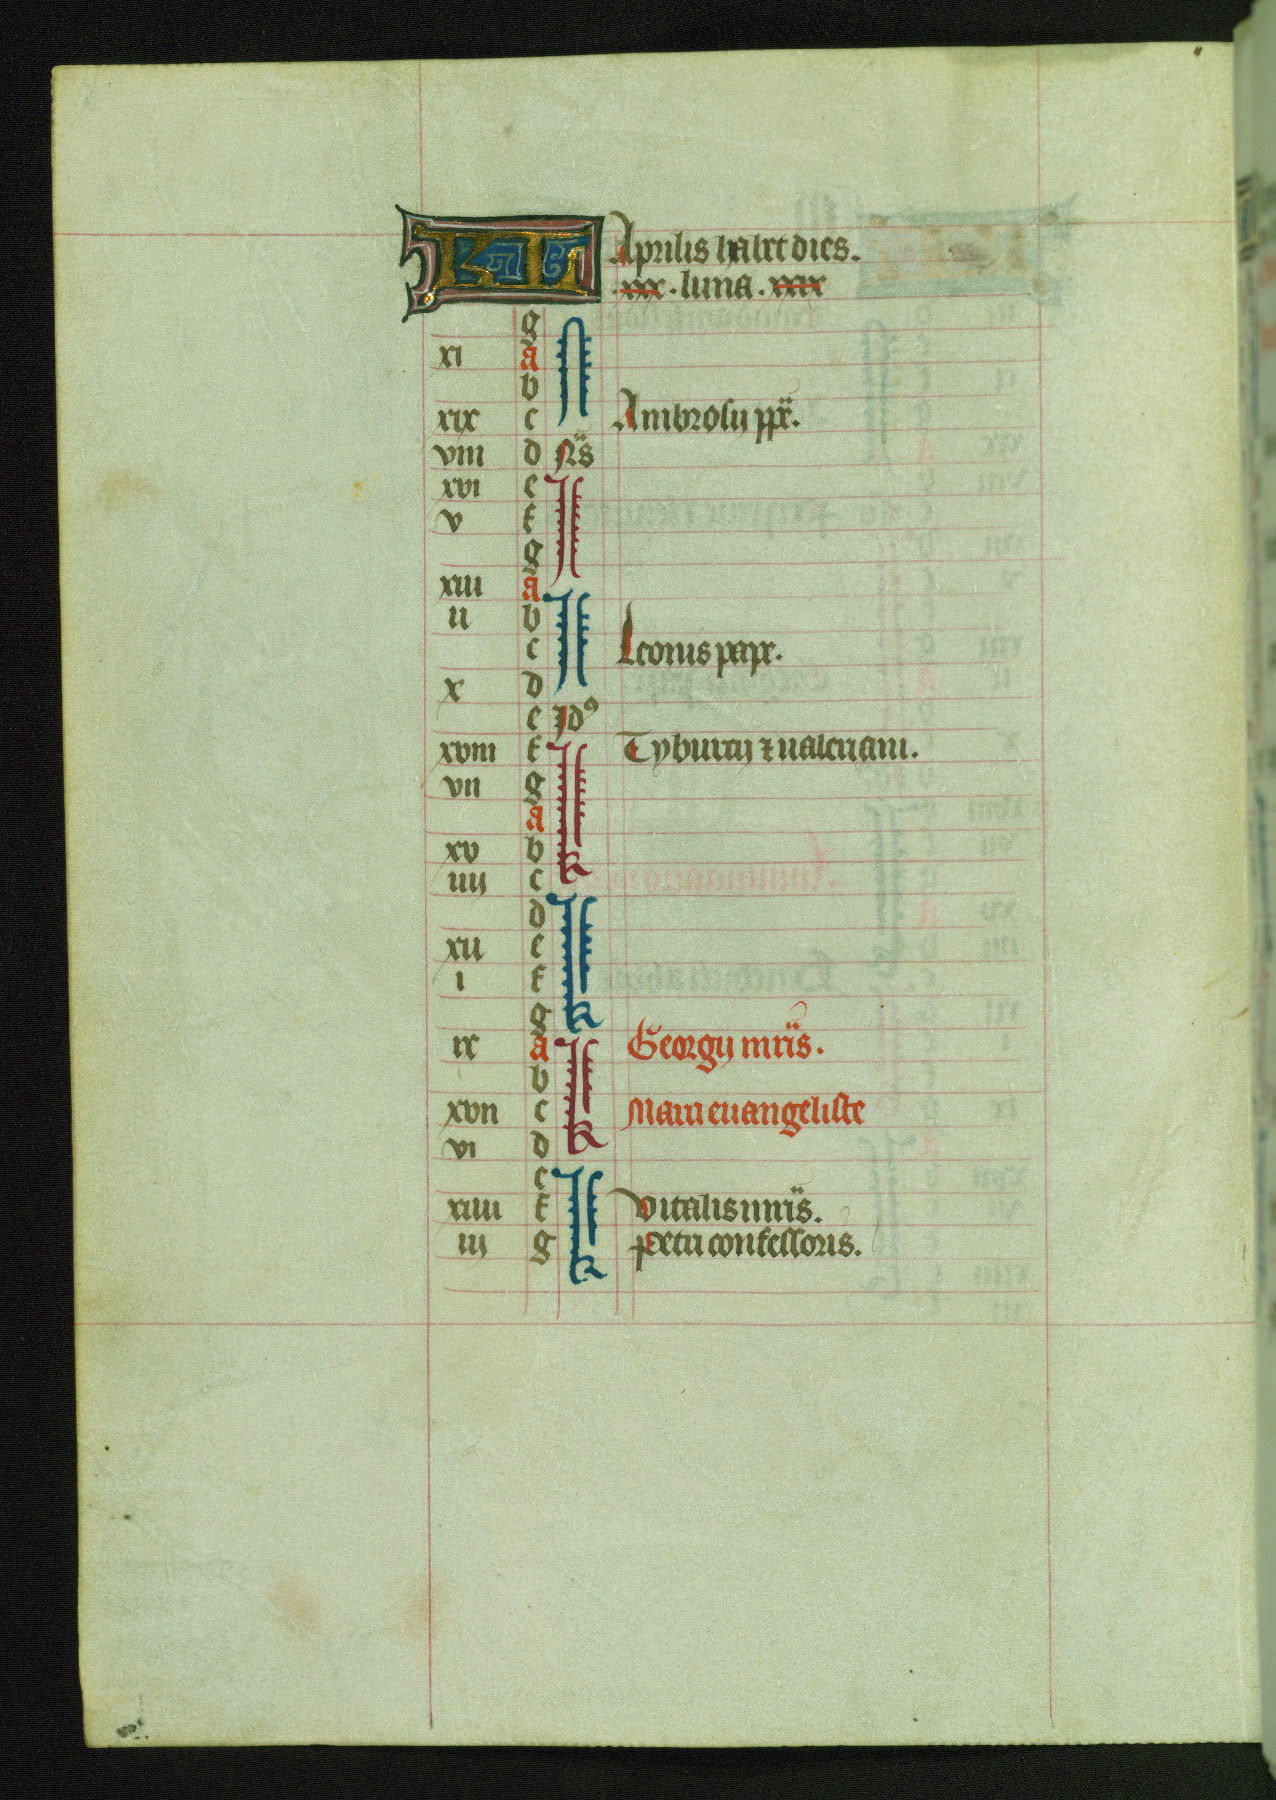 KL Aprilis habet dies.
.xxx. luna .xxix
g
xi a
b
xix c Ambrosij
viii d Ns
xvi e
v f
g
xiii a
ii b
c Leonis pape.
x d
e Idꝰ
xviii f Tyburcij ⁊ ualeriani.
vii g
a
xv b
iiij c
d
xii e
i f
g
ix a Georgij mris.
b
xvii c Marci euangeliste
vi d
e
xiiii f Vitalis mris.
iij g Petri confessoris.